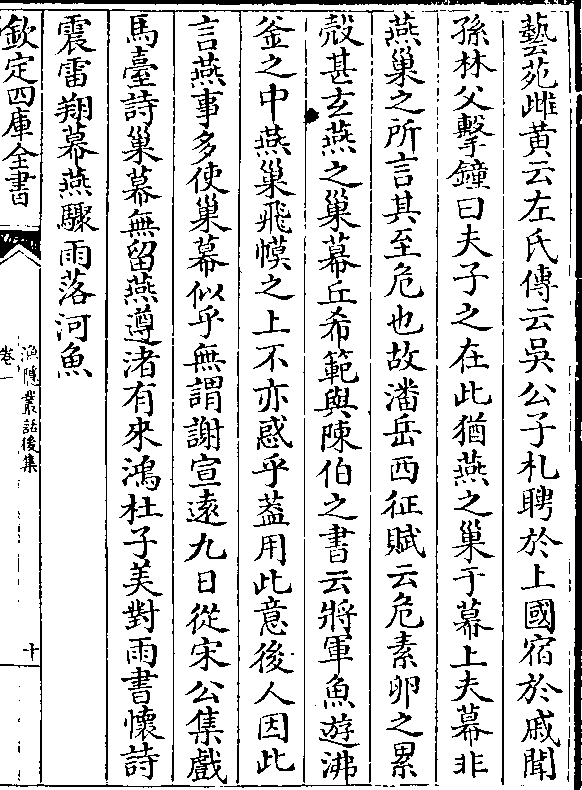 藝苑雌黃云左氏傳云吳公子札聘於上國宿於戚聞
孫林父擊鐘曰夫子之在此猶燕之巢于幕上夫幕非
燕巢之所言其至危也故潘岳西征賦云危素卵之累
殼甚玄燕之巢幕丘希範與陳伯之書云將軍魚遊沸
釜之中燕巢飛幙之上不亦惑乎葢用此意後人因此
言燕事多使巢幕似乎無謂謝宣遠九日從宋公集戲
馬臺詩巢幕無留燕遵渚有來鴻杜子美對雨書懷詩
震雷翔幕燕驟雨落河魚
欽定四庫全書
漁隱叢話後集
卷一
十